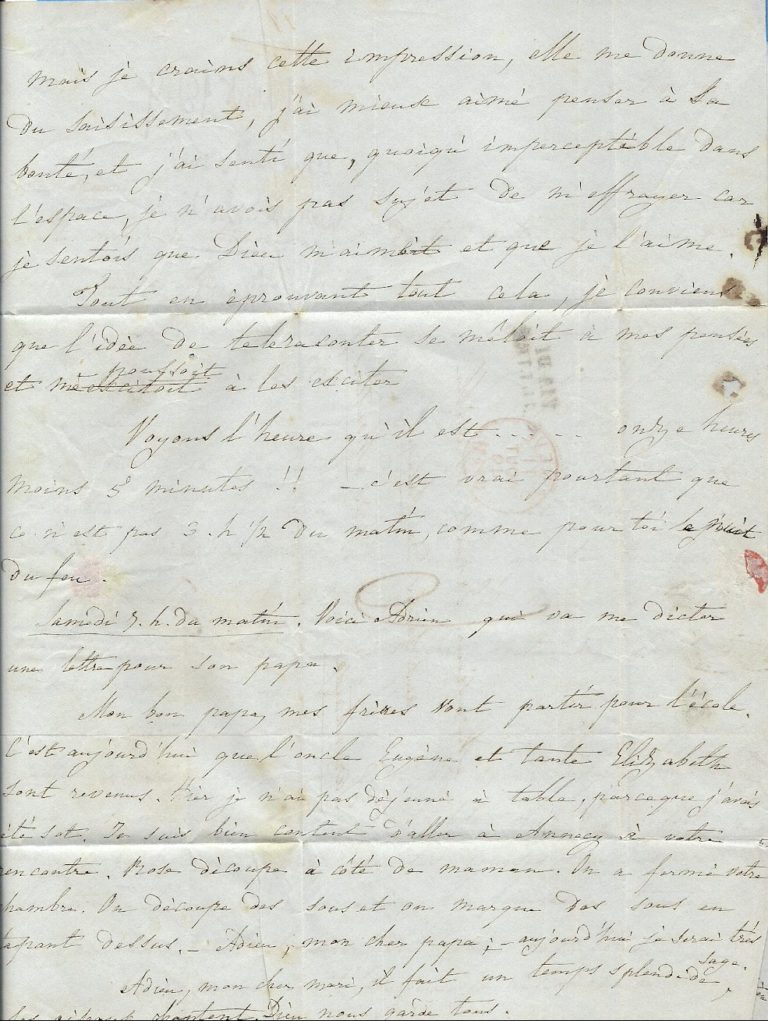 mais je crains cette impression, elle me donne
du saisissement, j'ai mieux aimé penser à Sa
bonté, et j'ai senti que, quoiqu'imperceptible dans
l'espace, je n'avois pas sujet de m'effrayer car
je sentois que Dieu m'aimoit et que je l'aime.
Tout en éprouvant tout cela, je conviens
que l'idée de te le raconter se mêloit à mes pensées
poussoit
et m'excitoit à les exciter
Voyons l'heure qu'il est ...... onze heures
moins 5 minutes !! – c'est vrai pourtant que
ce n'est pas 3. h 1/2 du matin, comme pour toi la nuit
du feu.
Samedi 7. h. du matin. Voici Adrien qui va me dicter
une lettre pour son papa.
Mon bon papa, mes frères vont partir pour l'école.
C'est aujourd'hui que l'oncle Eugène et tante Elizabeth
sont revenus. Hier je n'ai pas déjeuné à table, parceque j'avois
été sot. Je suis bien content d'aller à Annecy à votre
rencontre. Rose découpe à côté de maman. On a fermé votre
chambre. On découpe des sous et on marque des sous en
tapant dessus. – Adieu, mon cher papa ; – aujourd'hui je serai très
sage.
Adieu, mon cher mari, il fait un temps splendide,
les oiseaux chantent. Dieu nous garde tous.